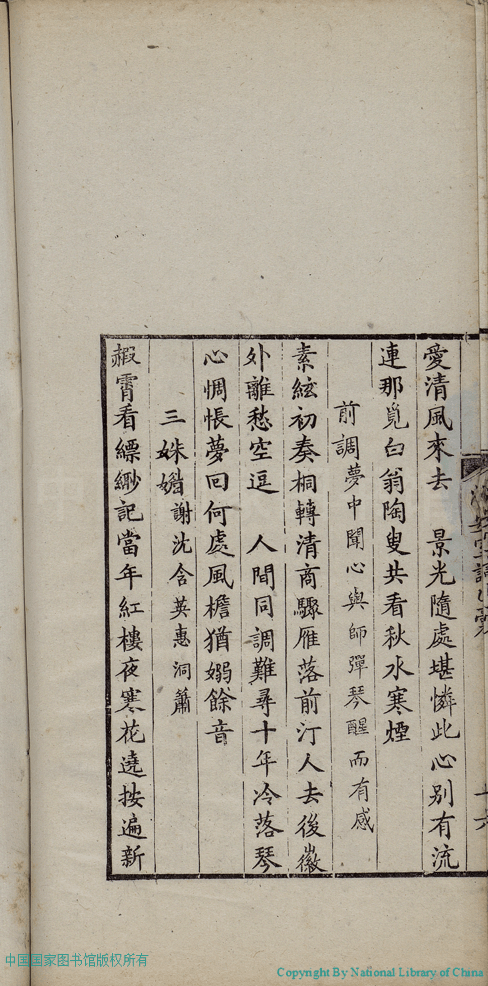 愛清風來去　景光隨處堪憐此心別有流
連那覓白翁陶叟共看秋水寒煙
前調夢中聞心與師彈琴醒而有感
素絃初奏桐轉清商驟雁落前汀人去後徽
外離愁空逗　人間同調難尋十年冷落琴
心惆悵夢回何處風檐猶嫋餘音
三姝媚謝沈含英惠洞簫
霄看縹緲記當年紅樓夜寒花遶按遍新
中国国家图书馆版权所有
Copyright By National Library of China